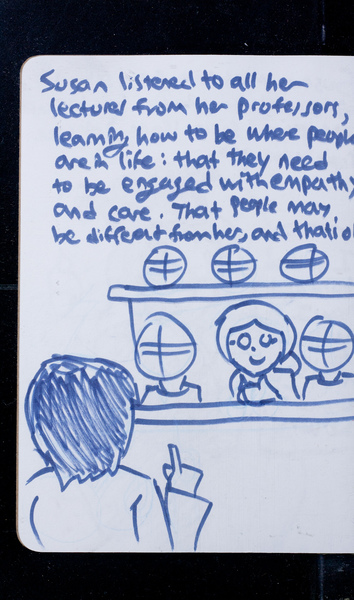 Susan listened to all her
lectures from her professors,
learning how to be where people
are in life: that they need
to be engaged with empathy
and care. That people may
be different from her, and that